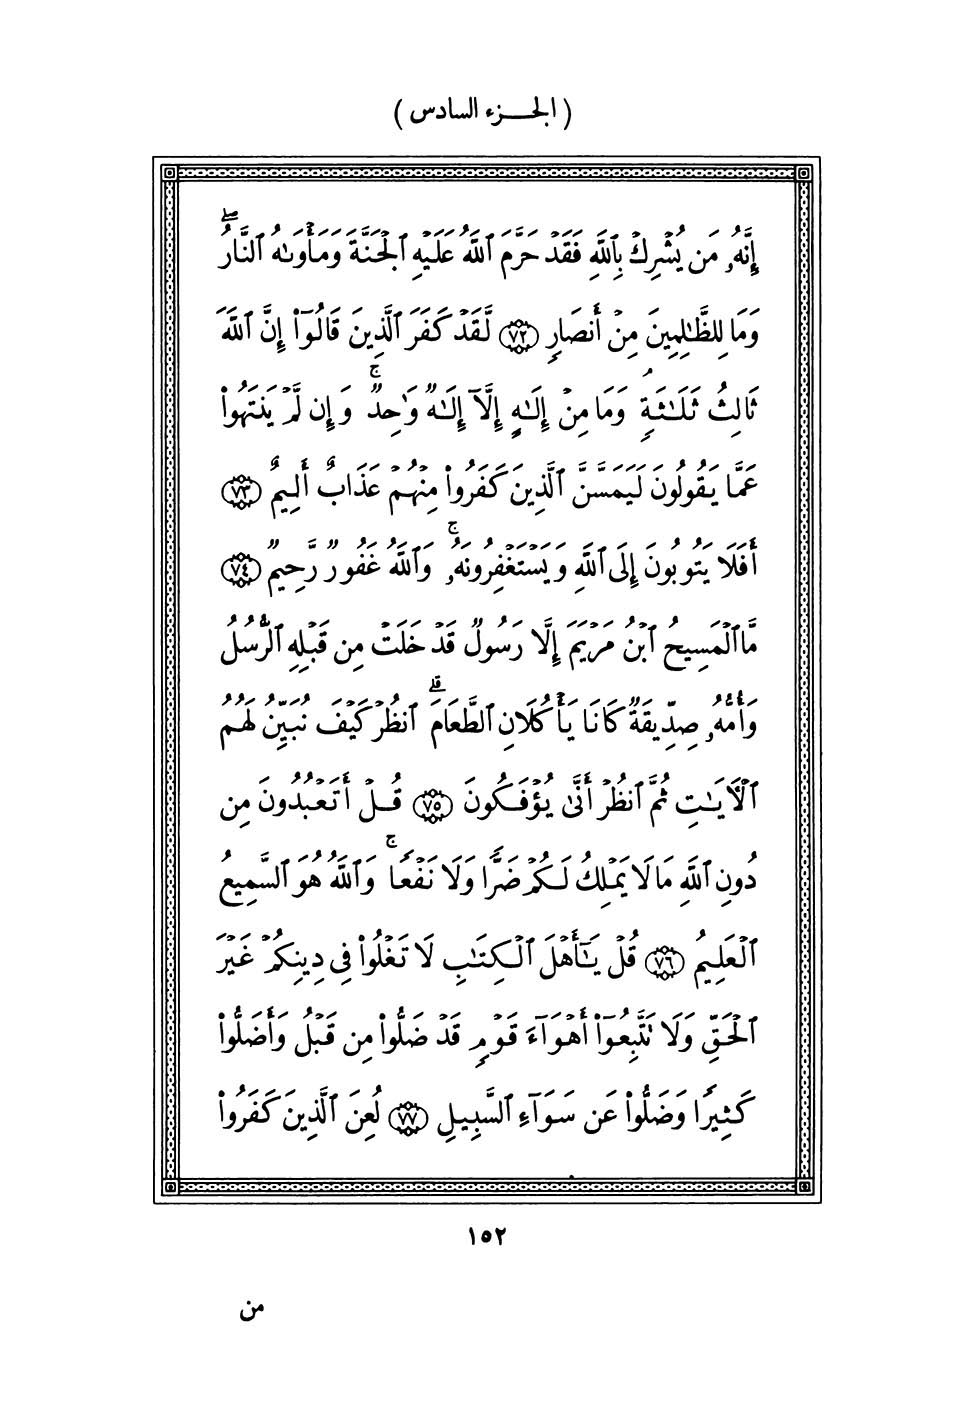 ( الجزء السادس )
إِنَّهُۥ مَن يُشْرِكْ بِٱللَّهِ فَقَدْ حَرَّمَ ٱللَّهُ عَلَيْهِ ٱلْجَنَّةَ وَمَأْوَىٰهُ ٱلنَّارُۖ
وَمَا لِلظَّـٰلِمِينَ مِنْ أَنصَارٍ ٧٢ لَّقَدْ كَفَرَ ٱلَّذِينَ قَالُوٓا۟ إِنَّ ٱللَّهَ
ثَالِثُ ثَلَـٰثَةٍۢ وَمَا مِنْ إِلَـٰهٍ إِلَّآ إِلَـٰهٌ وَٰحِدٌۚ وَإِن لَّمْ يَنتَهُوا۟
عَمَّا يَقُولُونَ لَيَمَسَّنَّ ٱلَّذِينَ كَفَرُوا۟ مِنْهُمْ عَذَابٌ أَلِيمٌ ٧٣
أَفَلَا يَتُوبُونَ إِلَى ٱللَّهِ وَيَسْتَغْفِرُونَهُۥۚ وَٱللَّهُ غَفُورٌ رَّحِيمٌ ٧٤
مَّا ٱلْمَسِيحُ ٱبْنُ مَرْيَمَ إِلَّا رَسُولٌ قَدْ خَلَتْ مِن قَبْلِهِ ٱلرُّسُلُ
وَأُمُّهُۥ صِدِّيقَةٌ كَانَا يَأْكُلَانِ ٱلطَّعَامَۗ ٱنظُرْ كَيْفَ نُبَيِّنُ لَهُمُ
ٱلْـَٔايَـٰتِ ثُمَّ ٱنظُرْ أَنَّىٰ يُؤْفَكُونَ ٧٥ قُلْ أَتَعْبُدُونَ مِن
دُونِ ٱللَّهِ مَا لَا يَمْلِكُ لَكُمْ ضَرًّا وَلَا نَفْعًاۚ وَٱللَّهُ هُوَ ٱلسَّمِيعُ
ٱلْعَلِيمُ ٧٦ قُلْ يَـٰٓأَهْلَ ٱلْكِتَـٰبِ لَا تَغْلُوا۟ فِى دِينِكُمْ غَيْرَ
ٱلْحَقِّ وَلَا تَتَّبِعُوٓا۟ أَهْوَآءَ قَوْمٍ قَدْ ضَلُّوا۟ مِن قَبْلُ وَأَضَلُّوا۟
كَثِيرًا وَضَلُّوا۟ عَن سَوَآءِ ٱلسَّبِيلِ ٧٧ لُعِنَ ٱلَّذِينَ كَفَرُوا۟
١٥٢
من